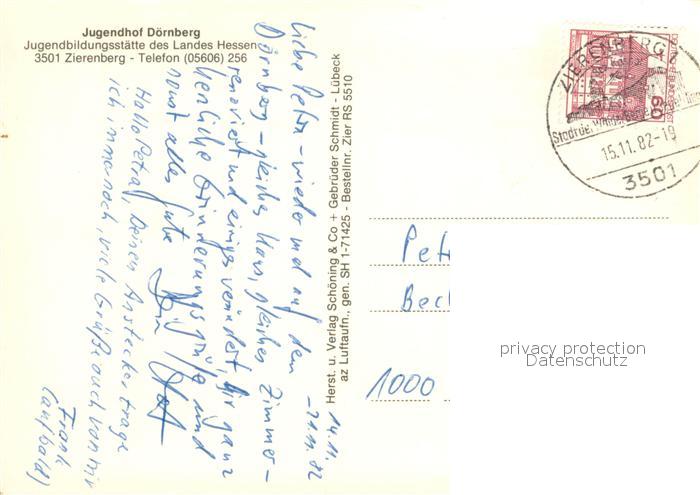 Jugendhof Dörnberg
Jugendbildungsstätte des Landes Hessen
3501 Zierenberg - Telefon (05606) 256
14.11.
-21.11.82
Liebe Petra - wieder mal auf dem
Dörnberg - gleiches Haus, gleiches Zimmer -
renoviert und einiges verändert. Dir ganz
herzliche Erinnerungsgrüße und
sonst alles Gute
Hallo Petra, Deinen Anstecker trage
ich immer noch, viele Grüße auch von mir
Frank
(auf bald)
Herst. u. Verlag Schöning & Co + Gebrüder Schmidt - Lübeck
az Luftaufn., gen. SH 1-71425 - Bestellnr. Zier RS 5510
60
ZIERENBERG 1
15.11.82-19
3501
Pet
Bec
1000
privacy protection
Datenschutz